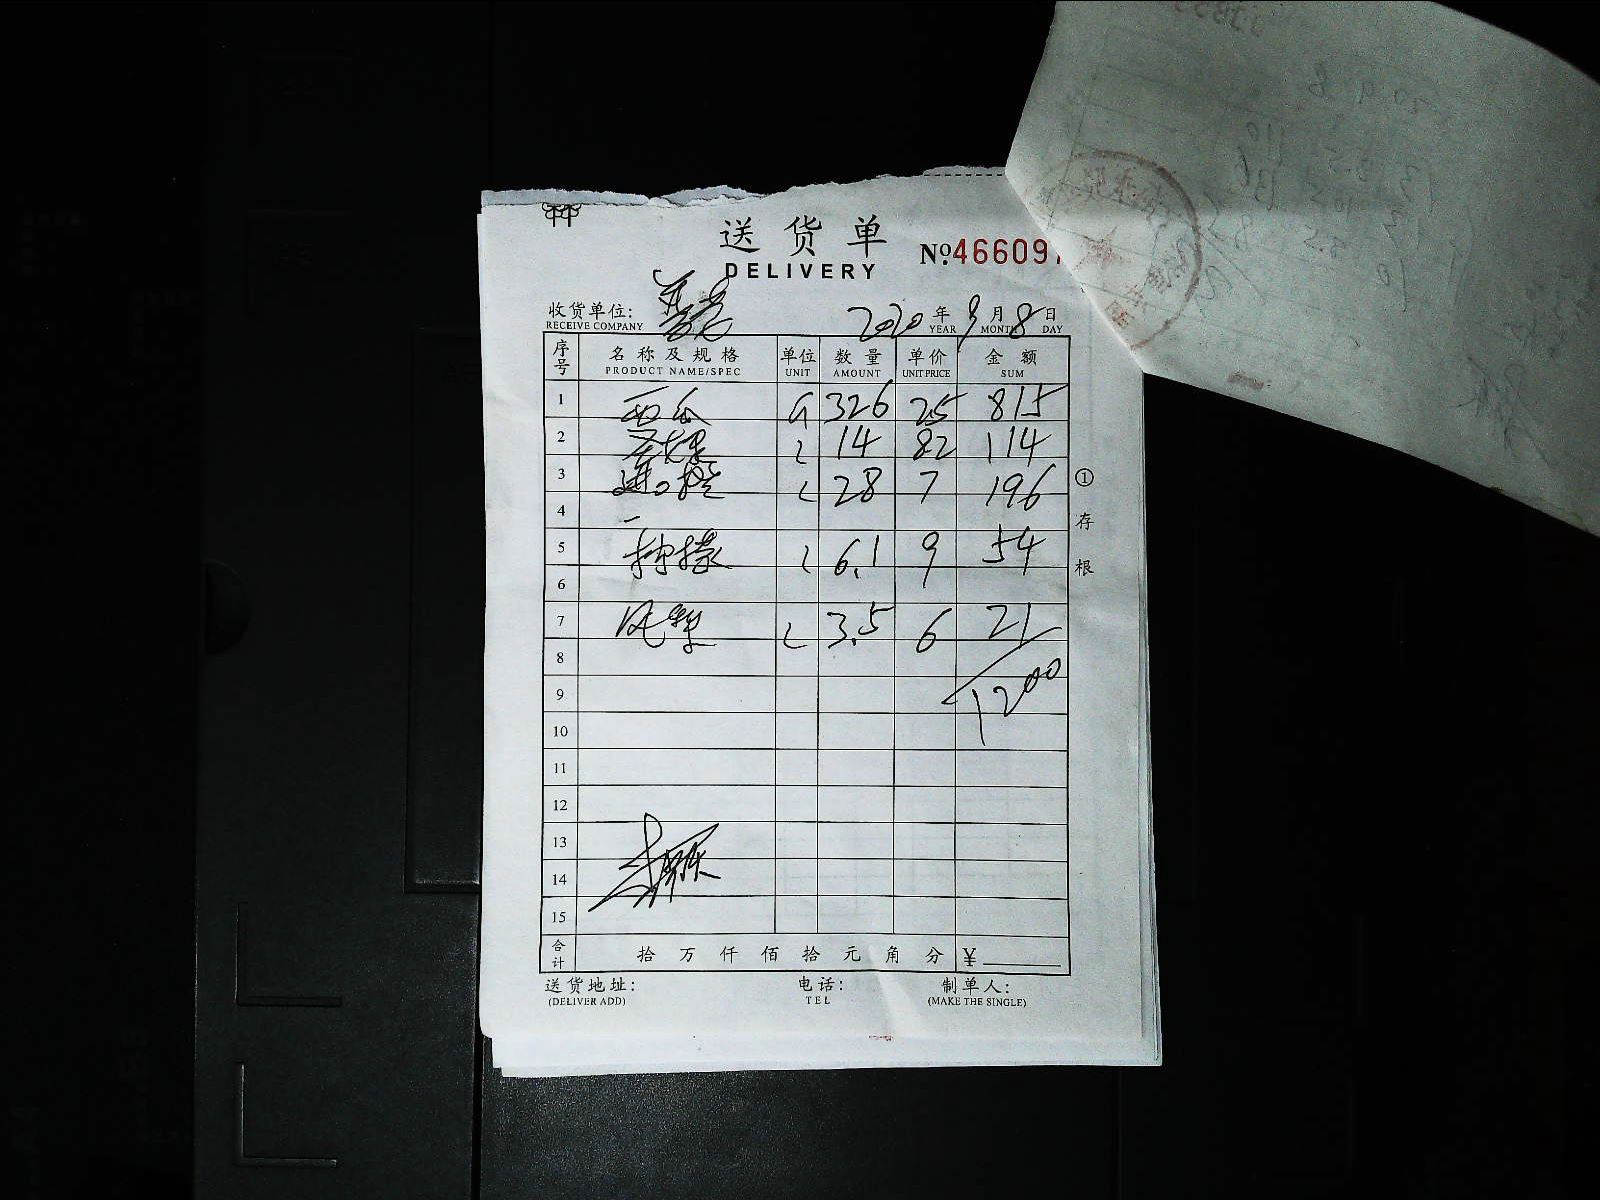 送货单
DELIVERY
№ 466091
收货单位:
RECEIVE COMPANY
2020 年 9 月 8 日
YEAR MONTH DAY
序号 名称及规格 单位 数量 单价 金额
PRODUCT NAME/SPEC UNIT AMOUNT UNIT PRICE SUM
1 西瓜 326 25 815
2 14 82 114
3 进口 28 7 196
4
5 柠檬 6.1 9 54
6
7 3.5 6 21
8
9 1200
10
11
12
13
14
15
合计 拾 万 仟 佰 拾 元 角 分 ¥
①存根
送货地址: 电话: 制单人:
(DELIVER ADD) TEL (MAKE THE SINGLE)